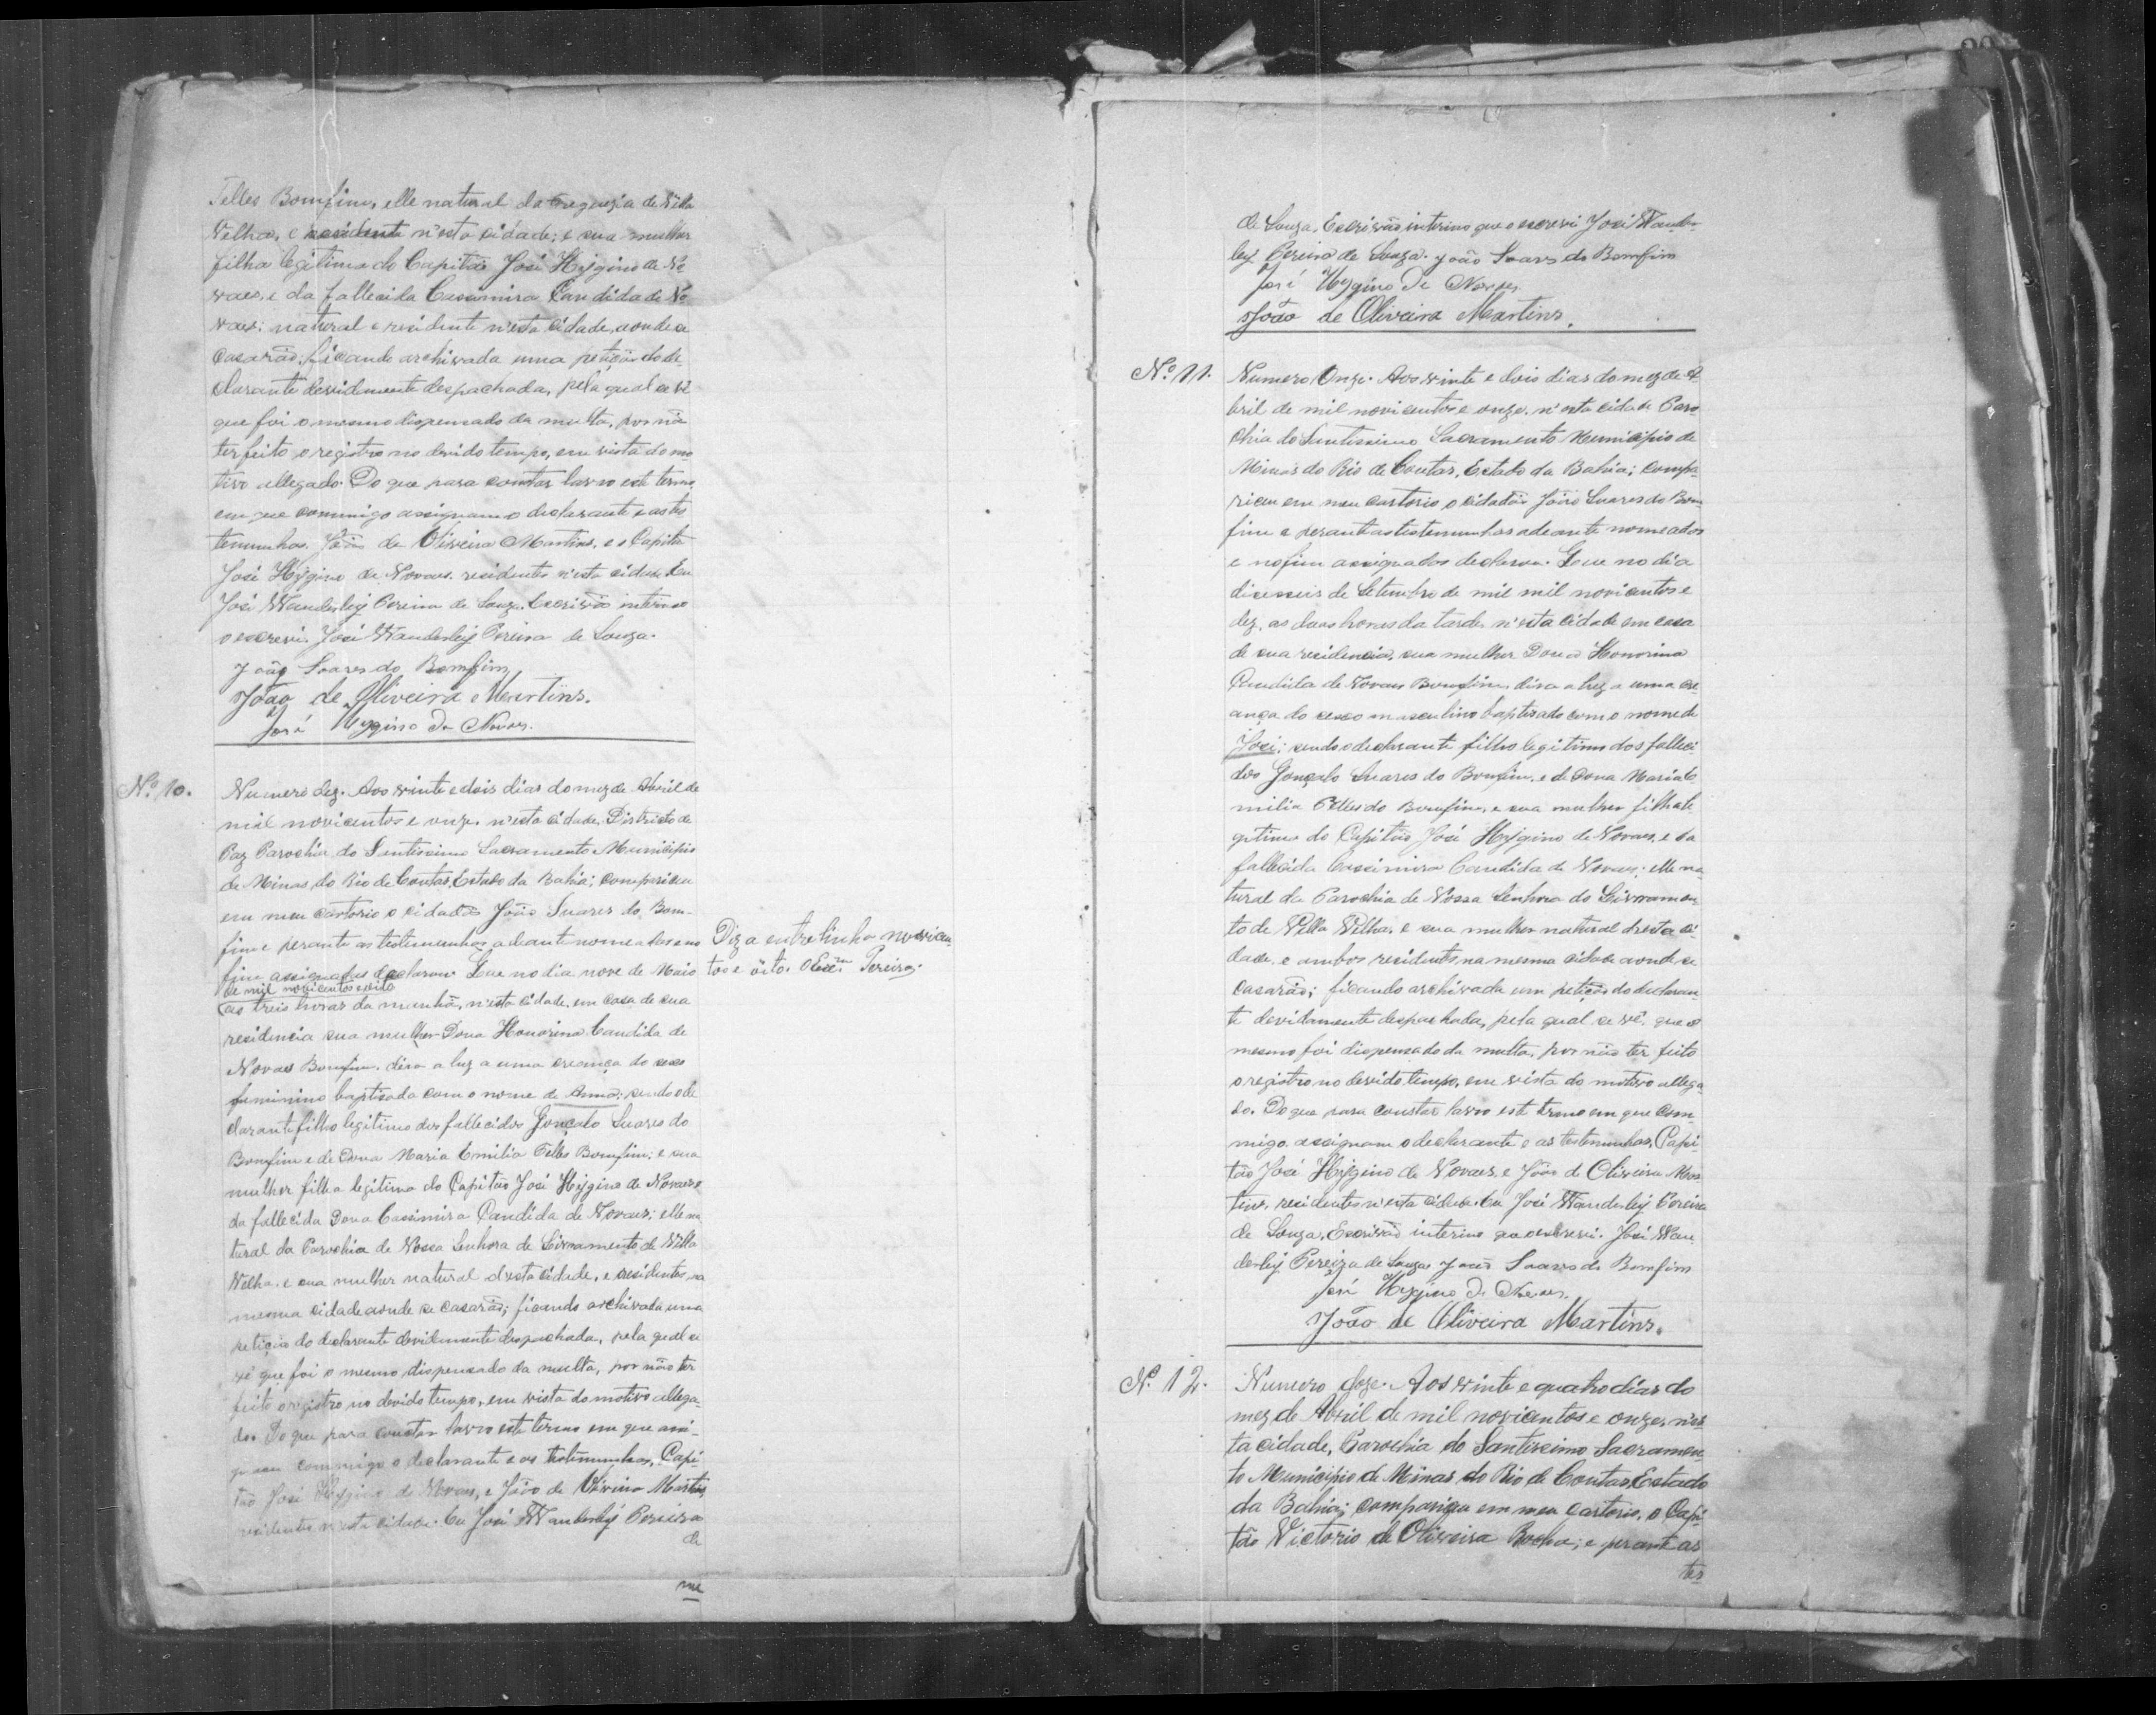 Telles Bomfim, elle natural da Freguezia de Villa
Velha, e residente n'esta cidade; e sua mulher
filha legitima do Capitão José Hygino de No
vaes, e da fallecida Casimira Candida de No
vaes; natural e residente n'esta cidade, aonde se
casarão; ficando archivada uma petição do de
clarante devidamente despachada, pela qual se vê
que foi o mesmo dispensado da multa, por não
ter feito o registro no devido tempo, em vista do mo
tivo allegado. Do que para constar lavro este termo
em que commigo assignam o declarante e as tes
temunhas. João de Oliveira Martins, e o Capitão
José Hygino de Novaes, residentes n'esta cidade. Eu
José Wanderley Pereira de Souza, Escrivão interino
o escrevi. José Wanderley Pereira de Souza.
João Soares do Bomfim
João de Oliveira Martins.
José Hygino de Novaes.
Nº 10.
Numero dez. Aos vinte e dois dias do mez de Abril de
mil novicentos e onze, n'esta cidade, Districto de
Paz Parochia do Santissimo Sacramento Municipio
de Minas do Rio de Contas, Estado da Bahia; compariceu
em meu cartorio o cidadão João Suares do Bom-
fim e perante as testemunhas adeante nomeadas e no
fim assignadas declarou. Que no dia nove de Maio
de mil novicentos e oito
as treis horas da manhã, n'esta cidade, em casa de sua
residencia sua mulher Dona Honorina Candida de
Novaes Bomfim, déra a luz a uma creança do sexo
feminino baptisada com o nome de Anna; sendo o de
clarante filho legitimo dos fallecidos Gonçalo Suares do
Bomfim e de Dona Maria Emilia Telles Bomfim; e sua
mulher filha legitima do Capitão José Hygino de Novaes e
da fallecida Dona Cassimira Candida de Novaes; elle na
tural da Parochia de Nossa Senhora do Livramento de Villa
Velha, e sua mulher natural d'esta cidade, e residentes na
mesma cidade aonde se casarão; ficando archivada uma
petição do declarante devidamente despachada, pela qual se
vê que foi o mesmo dispensado da multa, por não ter
feito o registro no devido tempo, em vista do motivo allega-
do. Do que para constar lavro este termo em que assi-
gnam commigo o declarante e as testimunhas, Capi-
tão José Hygino de Novaes, e João de Oliveira Martins,
residentes n'esta cidade. Eu José Wanderley Pereira
de
Diz a entrelinha novicen
tos e oito. O Escrm Pereira.
de Souza, Escrivão interino que o escrevi José Wander
ley Pereira de Souza. João Soares do Bomfim
José Hygino de Novaes
João de Oliveira Martins.
Nº 11.
Numero Onze. Aos vinte e dois dias do mez de A-
bril de mil novicentos e onze, n'esta cidade Paro
chia do Santissimo Sacramento Municipio de
Minas do Rio de Contas, Estado da Bahia; compa
riceu em meu cartorio o cidadão João Suares do Bom
fim e perante as testemunhas adeante nomeadas
e no fim assignadas declarou. Que no dia
dieseseis de Setembro de mil mil novicentos e
dez, as duas horas da tarde, n'esta cidade em casa
de sua residencia, sua mulher Dona Honorina
Candida de Novaes Bomfim, déra a luz a uma cre
ança do sexo masculino baptisado com o nome de
José; sendo o declarante filho legitimo dos falleci
dos Gonçalo Suares do Bomfim, e de Dona Maria E
milia Telles do Bomfim, e sua mulher filha le
gitima do Capitão José Hygino de Novaes, e da
fallecida Cassimira Candida de Novaes; elle na
tural da Parochia de Nossa Senhora do Livramen
to de Villa Velha, e sua mulher natural d'esta ci-
dade, e ambos residentes na mesma cidade aonde se
casarão; ficando archivada um petição do declaran
te devidamente despachada, pela qual se vê, que o
mesmo foi dispensado da multa, por não ter feito
o registro no devido tempo, em vista do motivo allega
do. Do que para constar lavro este termo em que com
migo assignam o declarante e as testemunhas, Capi-
tão José Hygino de Novaes, e João de Oliveira Mar
tins, residentes n'esta cidade. Eu José Wanderley Pereira
de Souza, Escrivão interino que o escrevi. José Wan
derley Pereira de Souza. João Soares do Bomfim
José Hygino de Novaes.
João de Oliveira Martins.
Nº 12.
Numero doze. Aos vinte e quatro dias do
mez de Abril de mil novicentos e onze, n'es
ta cidade, Parochia do Santissimo Sacramen
to Municipio de Minas do Rio de Contas, Estado
da Bahia; compariceu em meu cartorio, o Capi-
tão Victorio de Oliveira Rocha; e perante as
tes